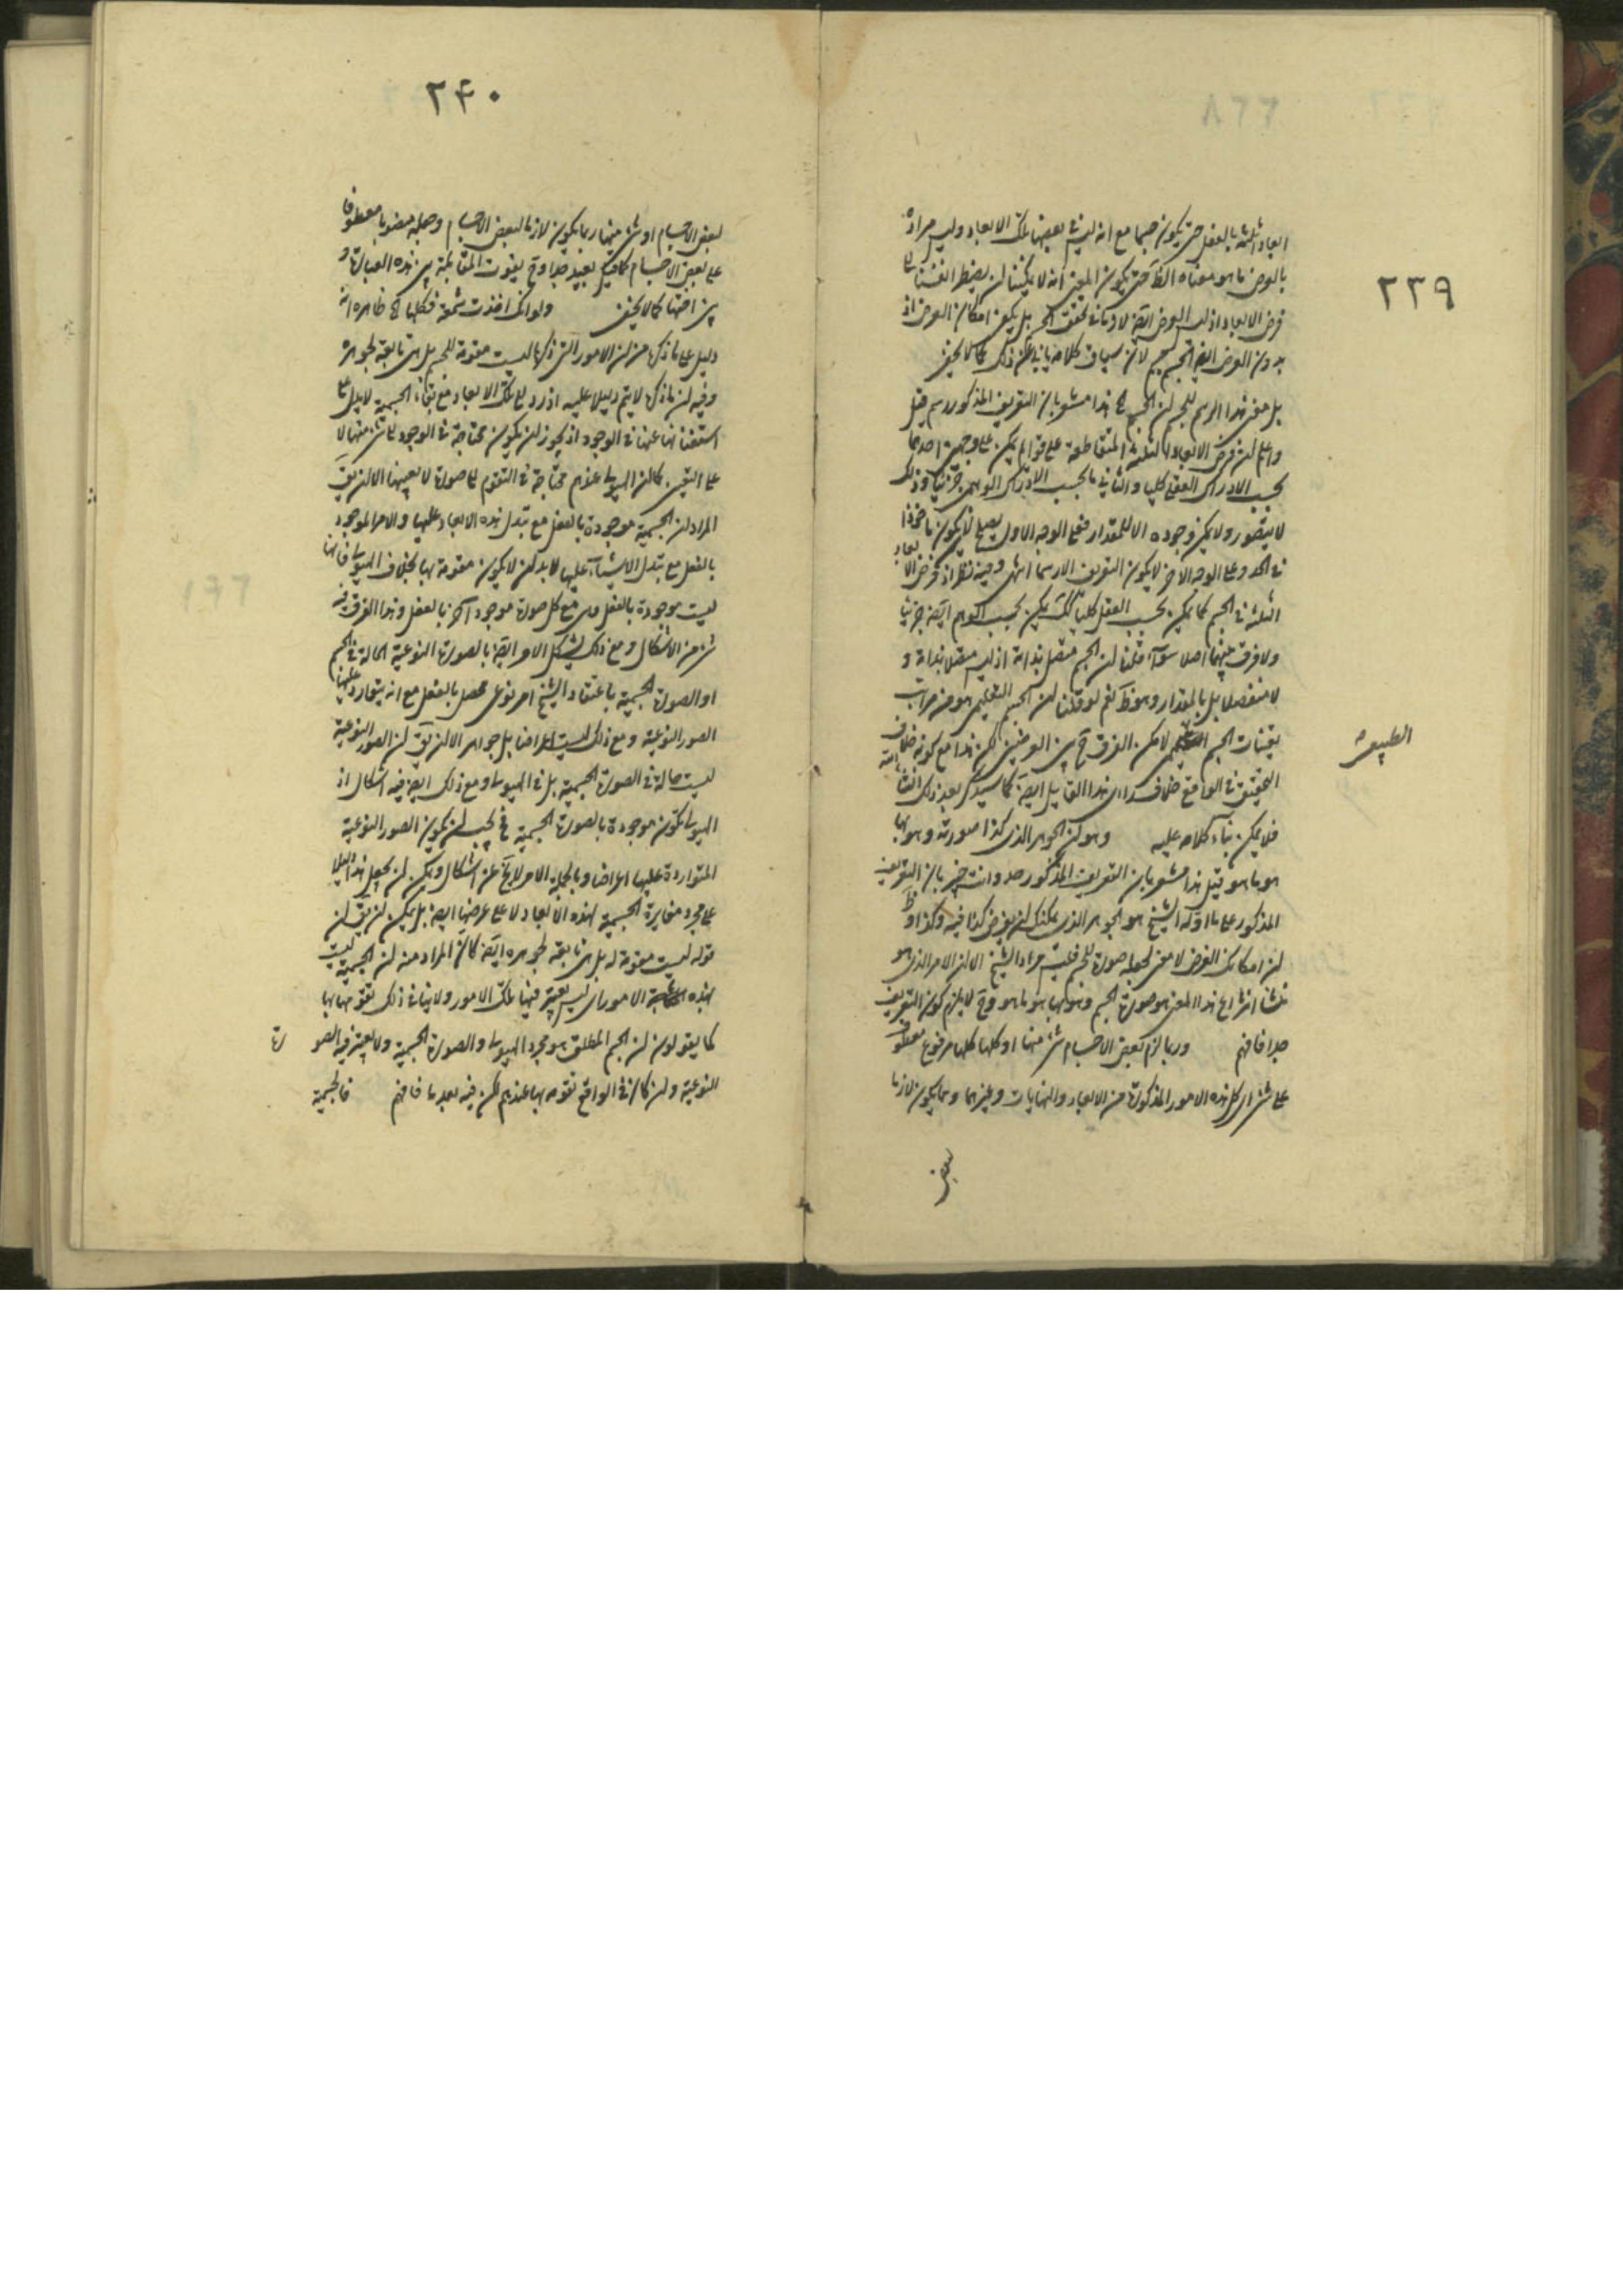 ٢٣٩
ابعاد ثلثة بالفعل حتى يكون جسما مع انه ليس بعضها تلك الابعاد وليس مراده
بالعرض ما هو معناه الظ حتى يكون المعنى انه لا يمكننا ان
فرض الابعاد اذ ليس العرض ايضا لازما في تحقق الجسم بل يكفي امكان العرض اذ
بدون العرض ايضا الجسم جسم لان سياق كلامه يأبى عن ذلك كما لا يخفى
بل معنى هذا الرسم للجسم ان الجسم هذا مشعر بان التعريف المذكور رسم قيل
واعلم ان فرض الابعاد الثلثة المتقاطعة على قوائم يمكن على وجهين احدهما
بحسب الادراك العقلي كليا والثاني ما بحسب الادراك الوهمي جزئيا وذلك
لا يتصور ولا يمكن وجوده الا للمقدار فعلى الوجه الاول يصلح لان يكون ماخوذا
في الحد وعلى الوجه الاخر لا يكون التعريف الا رسما انتهى وفيه نظر اذ فرض الابعاد
الثلثة في الجسم كما يمكن بحسب العقل كليا كك يمكن بحسب الوهم ايضا جزئيا
ولا فرق بينهما اصلا سواء قلنا ان الجسم متصل بذاته او ليس متصلا بذاته و
لا منفصلا بل بالمقدار وهو ظ نعم لو قلنا ان الجسم التعليمي هو من مراتب
تعينات الجسم الطبيعي لامكن الفرق ح بين الوجهين لكن هذا مع كونه خلاف
التحقيق في الواقع خلاف راى هذا القايل ايضا كما سيذكر بعد ذلك انشاء الله
فلا يمكن بناء كلامه عليه وهو ان الجوهر الذي كذا صورته وهو بها
هو ما هو قيل هذا مشعر بان التعريف المذكور حد وانت خبير بان التعريف
المذكور على ما اوله الشيخ هو الجوهر الذي يمكنك ان تفرض كذا فيه وكذا وظ
ان امكانك الفرض لا معنى لجعله صورة للجسم فليس مراد الشيخ الا ان الامر الذي هو
منشا انتزاع هذا المعنى هو صورة الجسم وهو بها هو ما هو وح لا يلزم كون التعريف
حدا فافهم وربما لزم بعض الاجسام شئ منها او كلها كلها مرفوع معطوف
على شئ اى كل هذه الامور المذكورة من الابعاد والنهايات وغيرهما ربما يكون لازما
بعض
الطبيعى
٢٤٠
لبعض الاجسام او شئ منها ربما يكون لازما لبعض الاجسام وجعله منصوبا معطوفا
على بعض الاجسام كما قيل بعيد جدا وح يفوت المقابلة بين هذه العبارة و
بين اختها كما لا يخفى ولو انك اخذت شمعة فشكلها الخ ظاهره انه
دليل على ما ذكره من ان الامور التي ذكرها ليست مقومة للجسم بل هي تابعة لجوهره
وفيه ان ما ذكره لا يتم دليلا عليه اذ زوال تلك الابعاد مع بقاء الجسمية لا يدل على
استغنائها عنها في الوجود اذ يجوز ان يكون محتاجة في الوجود الى شئ منها لا
على التعين كما ان الهيولى عندهم محتاجة في التقوم الى صورة لا بعينها الا ان يق
المراد ان الجسمية موجودة بالفعل مع تبدل هذه الابعاد عليها والامر الموجود
بالفعل مع تبدل الاشياء عليها لا بد ان لا يكون متقومة بها بخلاف الهيولى فانها
ليست موجودة بالفعل وهي مع كل صورة موجود آخر بالفعل وهذا الفرق فيه
شئ من الاشكال ومع ذلك يشكل الامر ايضا بالصورة النوعية الحالة في الجسم
او الصورة الجسمية باعتقاد الشيخ امر نوعى محصل بالفعل مع انه يتوارد عليها
الصور النوعية ومع ذلك ليست اعراضا بل جواهر الا ان يق ان الصور النوعية
ليست حالة في الصورة الجسمية بل في الهيولى ومع ذلك ايضا فيه اشكال اذ
الهيولى تكون موجودة بالصورة الجسمية فح يجب ان يكون الصور النوعية
المتواردة عليها اعراضا وبالجملة الامر لا يخ عن اشكال ويمكن ان يجعل هذا دليلا
على مجرد مغايرة الجسمية لهذه الابعاد لا على عرضيتها ايضا بل يمكن ان يق ان
قوله ليست مقومة له بل هي تابعة لجوهره ايضا كان المراد منه ان الجسمية ليست
هذه الامور اى ليس يعتبر فيها تلك الامور ولا ينافي ذلك تقومها بها
كما يقولون ان الجسم المطلق هو مجرد الهيولى والصورة الجسمية ولا يعتبر فيه الصورة
النوعية وان كان في الواقع تقومه بها عندهم لكن فيه بعد ما فافهم فالجسمية